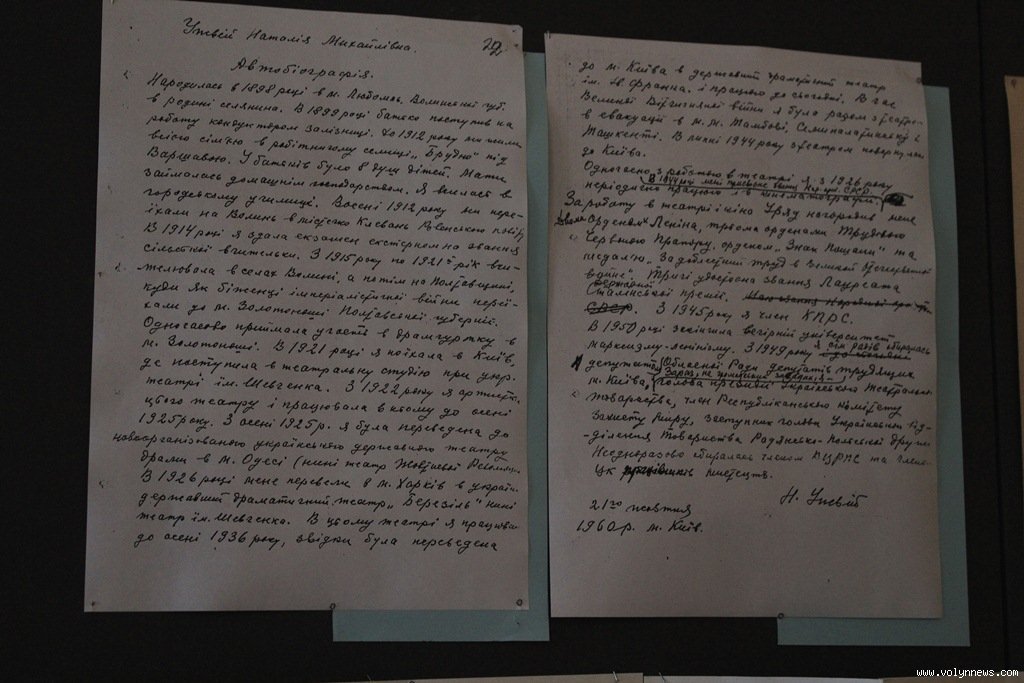 Ужвій Наталія Михайлівна.
22
Автобіографія.
Народилась в 1898 році в м. Любомль, Волинської губ.
в родині селянина. В 1899 році батько поступив на
роботу кондуктором залізниці. До 1912 року ми жили
всією сім'єю в робітничому селищі „Брудно" під
Варшавою. У батьків було 8 душ дітей. Мати
займалась домашнім господарством. Я вчилась в
городському училищі. Восени 1912 року ми пере-
їхали на Волинь в містечко Клевань Рівенського повіту
В 1914 році я здала екзамен екстерном на звання
сільської вчительки. З 1915 року по 1921й рік вчи-
телювала в селах Волині, а потім на Полтавщині,
куди як біженці імперіалістичної війни переї-
хали до м. Золотоноші Полтавської губернії.
Одночасово приймала участь в драмгуртку в
м. Золотоноші. В 1921 році я поїхала в Київ,
де поступила в театральну студію при укр.
театрі ім. Шевченка. З 1922 року я артистка
цього театру і працювала в ньому до осені
1925 року. З осені 1925 р. я була переведена до
новоорганізованого українського державного театру
драми в м. Одесі (нині театр Жовтневої Революції
В 1926 році мене перевели в м. Харків в україн.
державний драматичний театр „Березіль" нині
театр ім. Шевченко. В цьому театрі я працювала
до осені 1936 року, звідки була переведена
до м. Київа в державний драматичний театр
ім. Ів. Франка, і працюю до сьогодні. В час
Великої Вітчизняної війни я була разом з театром
в евакуації в м.м. Тамбові, Семипалатинську і
Ташкенті. В 1944 року з театром повернулась
до Київа.
Одночасно з роботою в театрі я з 1926 року
В 1944 році мені присвоєно звання Нар. арт. СРСР.
періодично працюю і в кінематографії.
За роботу в театрі і кіно Уряд нагородив мене
двома Орденами Леніна, трьома орденами Трудового
Червоного Прапору, орденом „Знак Пошани" та
медаллю „За доблесний труд в Великой Отечественной
войне". Тричі удостоєна звання Лауреата
державної
Сталінської премії. Маю звання Народної арт.
СРСР. З 1945 року я член КПРС.
В 1950 році закінчила вечірній університет
марксизму-ленінізму. З 1949 року я сім разів обиралась
депутатом Обласної Ради депутатів трудящих
м. Київа, голова президії Українського Театрального
товариства, член Республіканського комітету
Захисту Миру, заступник голови Українського від-
ділення Товариства Радянсько-Польської дружби
Неодноразово обиралась членом ВЦРПС та членом
ЦК мистецтв.
Н. Ужвій
21го жовтня
1960 р. м. Київ.
www.volynnews.com